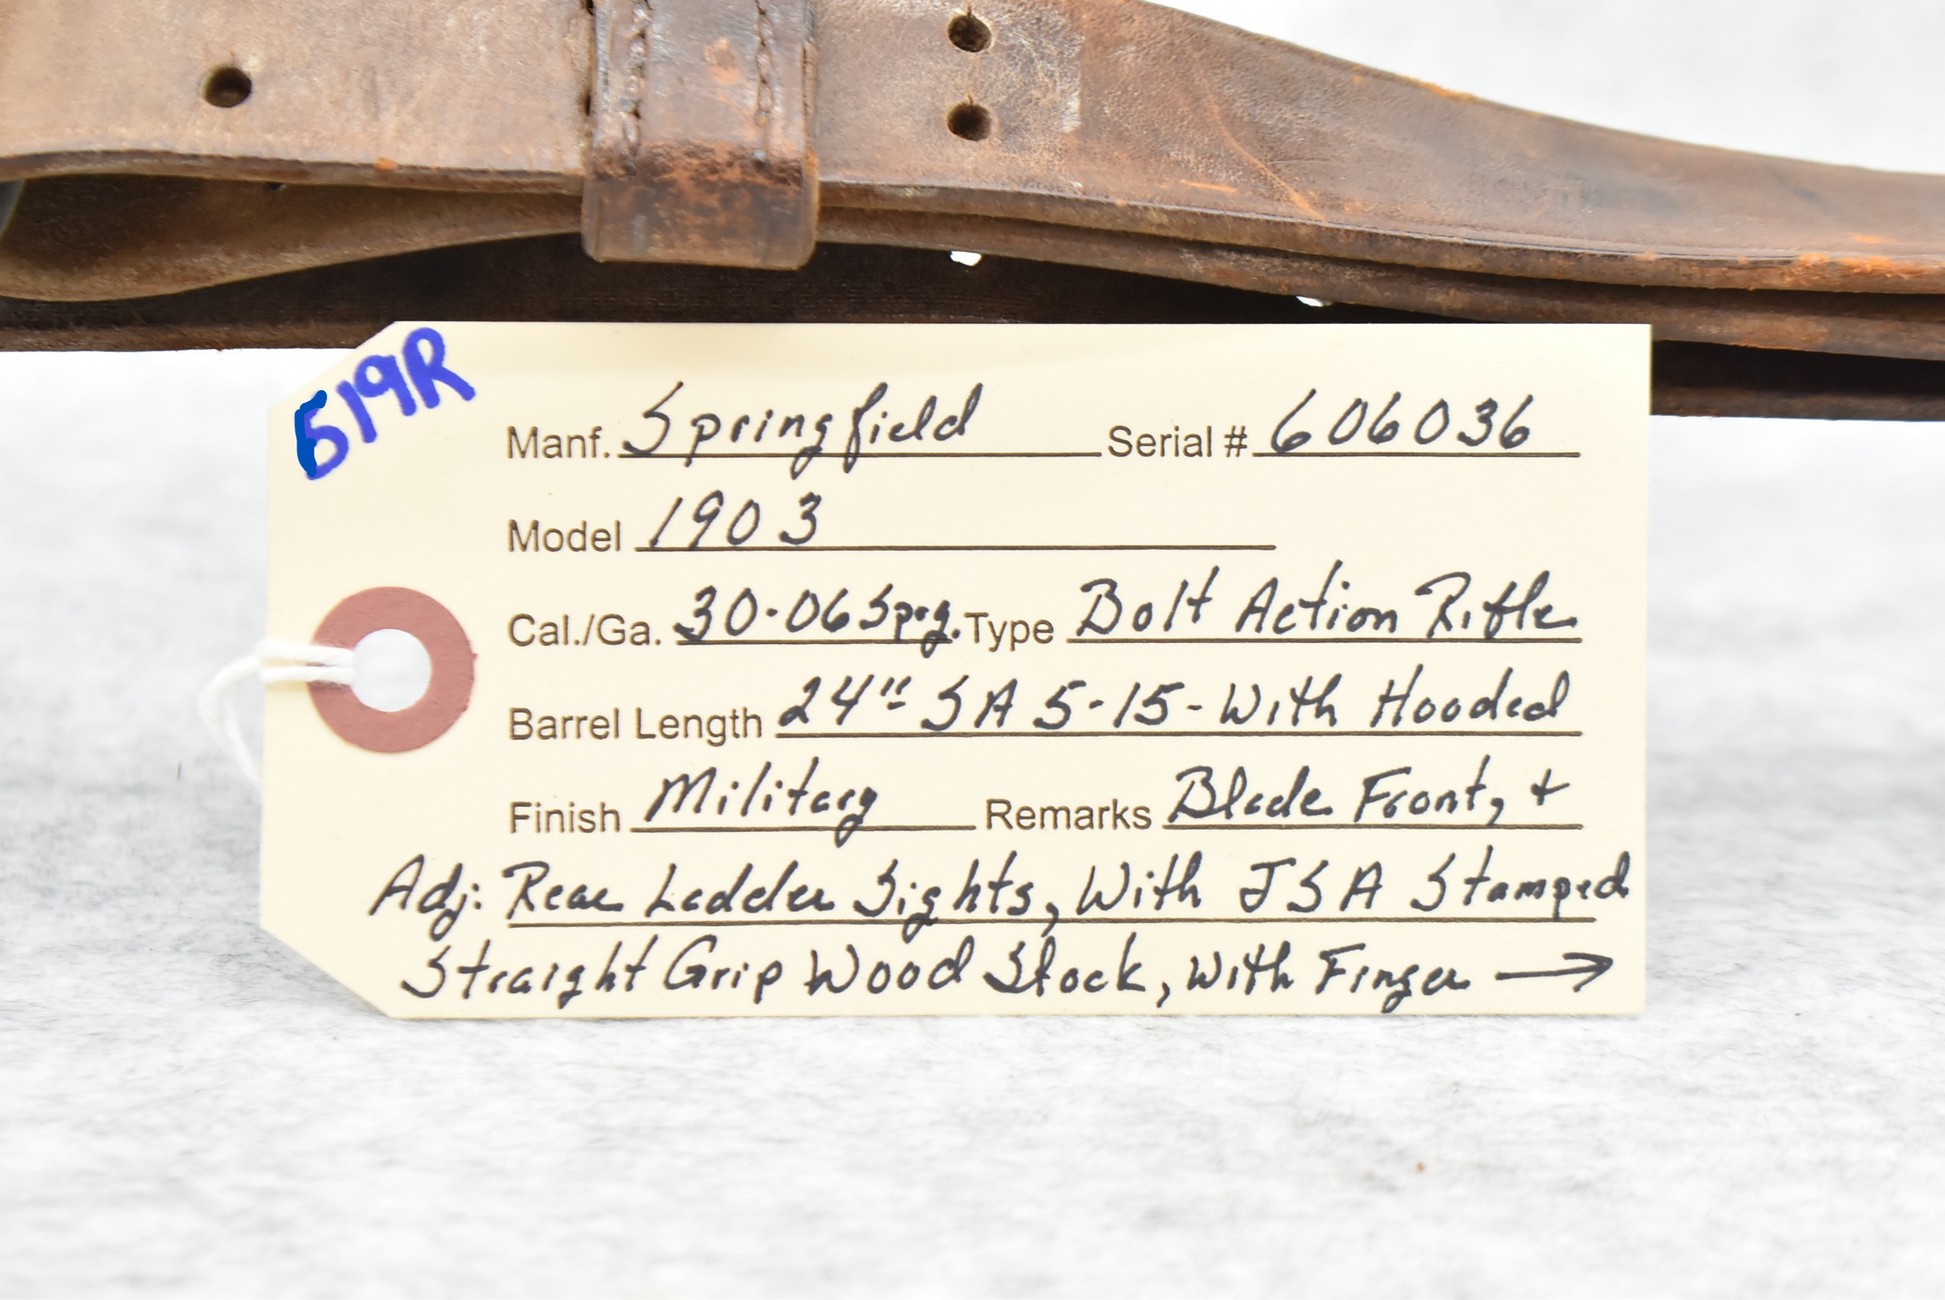 519R
Manf. Springfield Serial # 606036
Model 1903
Cal./Ga. 30-06 Sprg. Type Bolt Action Rifle
Barrel Length 24" SA 5-15- With Hooded
Finish Military Remarks Blade Front, +
Adj: Rear Ladder Sights, With JSA Stamped
Straight Grip Wood Stock, With Finger →